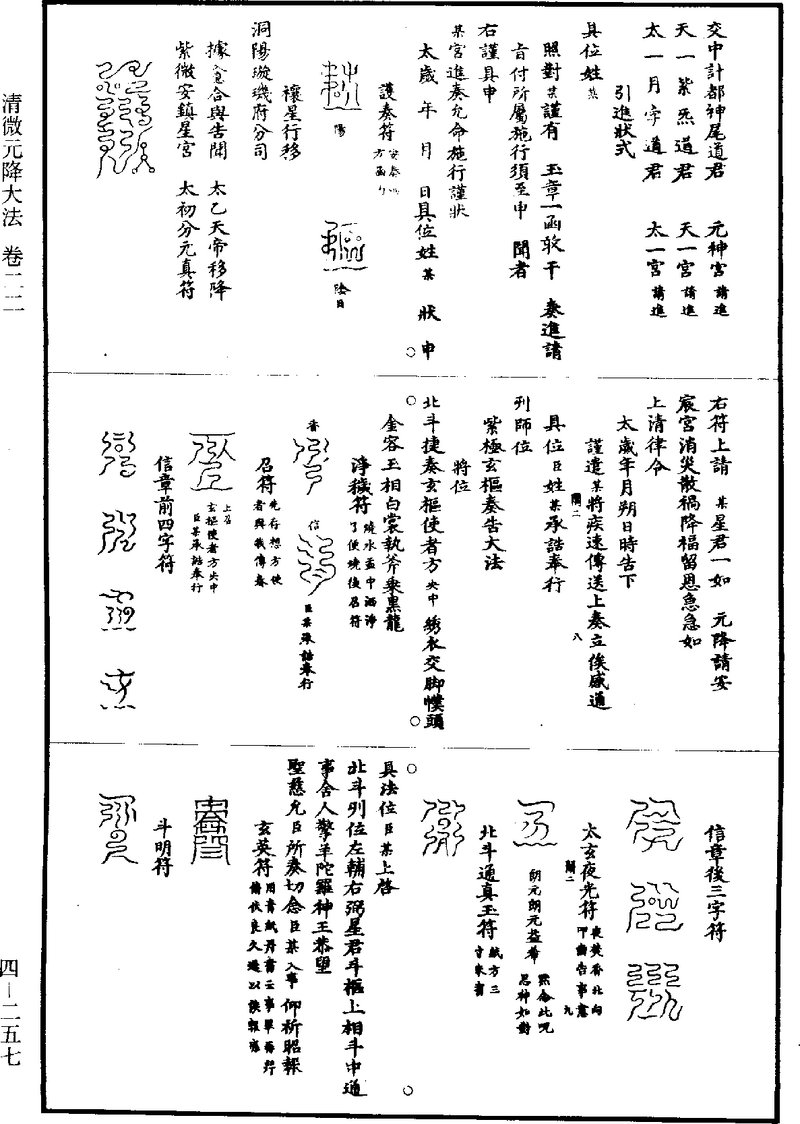 交中計都神尾道君　元神宮請進
天一紫炁道君　天一宮請進
太一月孛道君　太一宮請進
引進狀式
具位姓某
照對某謹有　玉章一函敢干　奏進請
旨付所屬施行須至申　聞者
右謹具申
某宮進奏允命施行謹狀
太歲　年　月　日具位姓某　狀　申
護奏符
陽
陰日
禳星行移
洞陽璇璣府分司
據入意合與告聞　太乙天帝移降
紫微安鎮星宮　太初分元真符
右符上請　某星君一如　元降請安
宸宮消災散禍降福留恩急急如
上清律令
太歲年月朔日時告下
謹遣某將疾速傳送上奏立俟感通
具位臣姓某承誥奉行
師位
紫極玄樞奏告大法
將位
北斗捷奏玄樞使者方央中綉衣交脚幞頭
金容玉相白裳執斧乘黑龍
淨穢符燒水盂中洒淨了便燒後召符
香
信
臣某承誥奉行
召符先存想方使者與我傳奏
上召
玄樞使者方央中
臣某承誥奉行
信章前四字符
信章後三字符
太玄夜光符夜焚香北向叩齒告事意
朗元朗元益希
默念此呪思神如對
北斗通真玉符紙方三寸朱書
具法位臣某上啓
北斗列位左輔右弼星君斗樞上相斗中通
事舍人擎羊陀羅神王恭望
聖慈允臣所奏切念臣某入事　仰祈昭報
玄英符
斗明符
清微元降大法　卷二二
四—二五七